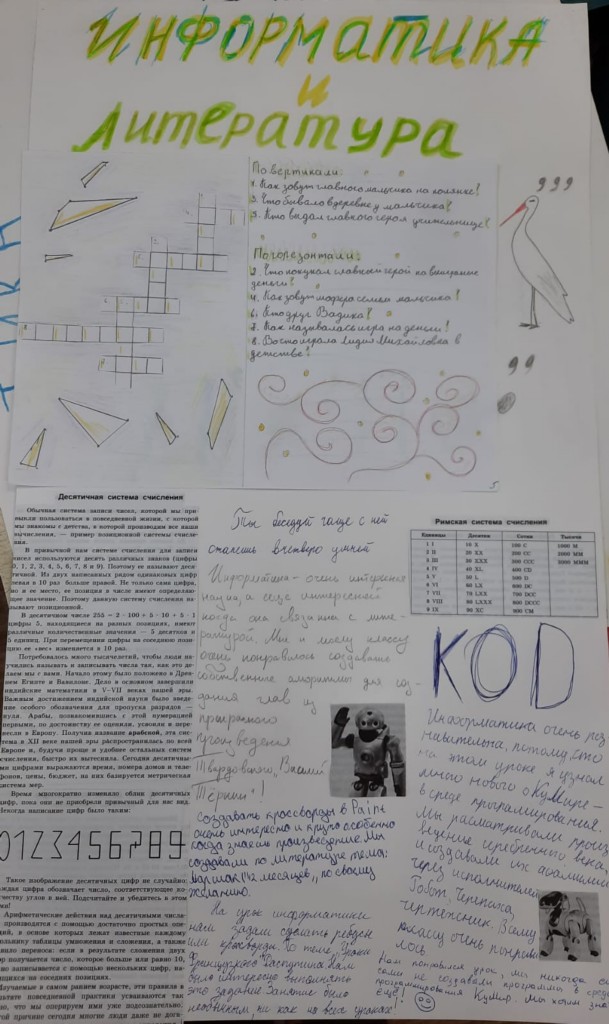 ИНФОРМАТИКА
и
ЛИТЕРАТУРА
По вертикали:
1. Как зовут главного мальчика на коляске?
3. Что бывало в деревне у мальчика?
5. Кто выдал главного героя учительнице?
По горезонтали:
2. Что покупал главный герой на выигранные
деньги?
4. Как зовут шофера семьи мальчика?
6. Кто друг Вадика?
7. Как называлась игра на деньги?
8. Во что играла Лидия Михайловна в
детстве?
Десятичная система счисления
Обычная система записи чисел, которой мы при-
выкли пользоваться в повседневной жизни, с которой
мы знакомы с детства, в которой производим все наши
вычисления, — пример позиционной системы счисле-
ния.
В привычной нам системе счисления для записи
чисел используются десять различных знаков (цифры
0, 1, 2, 3, 4, 5, 6, 7, 8 и 9). Поэтому ее называют деся-
тичной. Из двух написанных рядом одинаковых цифр
левая в 10 раз больше правой. Не только сама цифра,
но и ее место, ее позиция в числе имеют определяю-
щее значение. Поэтому данную систему счисления на-
зывают позиционной.
В десятичном числе 255 = 2 · 100 + 5 · 10 + 5 · 1
цифры 5, находящиеся на разных позициях, имеют
различные количественные значения — 5 десятков и
5 единиц. При перемещении цифры на соседнюю пози-
цию ее «вес» изменяется в 10 раз.
Потребовалось много тысячелетий, чтобы люди на-
учились называть и записывать числа так, как это де-
лаем мы с вами. Начало этому было положено в Древ-
нем Египте и Вавилоне. Дело в основном завершили
индийские математики в V–VII веках нашей эры.
Важным достижением индийской науки было введе-
ние особого обозначения для пропуска разрядов —
нуля. Арабы, познакомившись с этой нумерацией
первыми, по достоинству ее оценили, усвоили и пере-
несли в Европу. Получив название арабской, эта сис-
тема в XII веке нашей эры распространилась по всей
Европе и, будучи проще и удобнее остальных систем
счисления, быстро их вытеснила. Сегодня десятичны-
ми цифрами выражаются время, номера домов и теле-
фонов, цены, бюджет, на них базируется метрическая
система мер.
Время многократно изменяло облик десятичных
цифр, пока они не приобрели привычный для нас вид.
Некогда написание цифр было таким:
0123456789
Такое изображение десятичных цифр не случайно:
каждая цифра обозначает число, соответствующее ко-
личеству углов в ней. Подсчитайте и убедитесь в этом
сами!
Арифметические действия над десятичными числа-
ми производятся с помощью достаточно простых опе-
раций, в основе которых лежат известные каждому
школьнику таблицы умножения и сложения, а также
правило переноса: если в результате сложения двух
цифр получается число, которое больше или равно 10,
то оно записывается с помощью нескольких цифр, на-
ходящихся на соседних позициях.
Изучаемые в самом раннем возрасте, эти правила в
результате повседневной практики усваиваются так
прочно, что мы оперируем ими уже подсознательно.
По этой причине сегодня многие люди даже не дога-
Ты беседуй чаще с ней
станешь вчетверо умней
Информатика – очень интересная
наука, а ещё интересней
когда она связана с лите-
ратурой. Мне и моему классу
очень понравилось создавать
собственные алгоритмы для соз-
дания глав из
прекрасного
произведения
Твардовского "Василий
Тёркин"!
Создавать кроссворды в Paint
очень интересно и круто особенно
когда знаешь произведение. Мы
создавали по литературе тема:
Маршак "12 месяцев", по своему
желанию.
На уроке информатики
нам задали сделать ребус
или кроссворд по теме "Уроки
французского" Распутина. Нам
было интересно выполнять
это задание. Занятие было
необычным, не как на всех уроках!
Римская система счисления
Единицы Десятки Сотни Тысячи
1 I 10 X 100 C 1000 M
2 II 20 XX 200 CC 2000 MM
3 III 30 XXX 300 CCC 3000 MMM
4 IV 40 XL 400 CD
5 V 50 L 500 D
6 VI 60 LX 600 DC
7 VII 70 LXX 700 DCC
8 VIII 80 LXXX 800 DCCC
9 IX 90 XC 900 CM
KOD
Информатика очень поз
навательна, потому, что
на этом уроке я узнал
много нового о Кумире –
в среде программирования.
Мы рассматривали произ
ведение серебряного века,
и создавали их анализ
через исполнителей
Робот, Черепаха,
чертежник. Всему
классу очень понрави
лось.
Нам понравился урок, мы никогда ещё
сами не создавали программы в среде
программирования Кумир. Мы хотим
ещё!